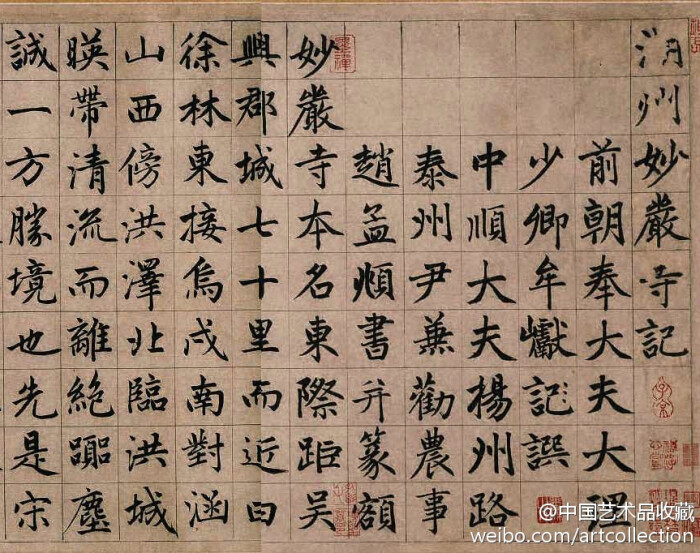 湖州妙嚴寺記
前朝奉大夫大理
少卿牟巘記譔
中順大夫楊州路
泰州尹兼勸農事
趙孟頫書并篆額
妙嚴寺本名東際距吳
興郡城七十里而近曰
徐林東接烏戍南對涵
山西傍洪澤北臨洪城
暎帶清流而離絕躢塵
誠一方勝境也先是宋
@中国艺术品收藏
weibo.com/artcollection